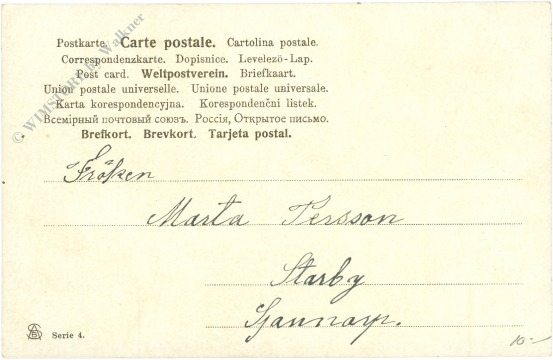 Postkarte. Carte postale. Cartolina postale.
Correspondenzkarte. Dopisnice. Levelező-Lap.
Post card. Weltpostverein. Briefkaart.
Union postale universelle. Unione postale universale.
Karta korespondencyjna. Korespondenční listek.
Всемірный почтовый союзъ. Россія, Открытое письмо.
Brefkort. Brevkort. Tarjeta postal.
© WIMSTORE by Walkner
Fröken
Marta Persson
Starby
Gannarp.
Serie 4.
10-